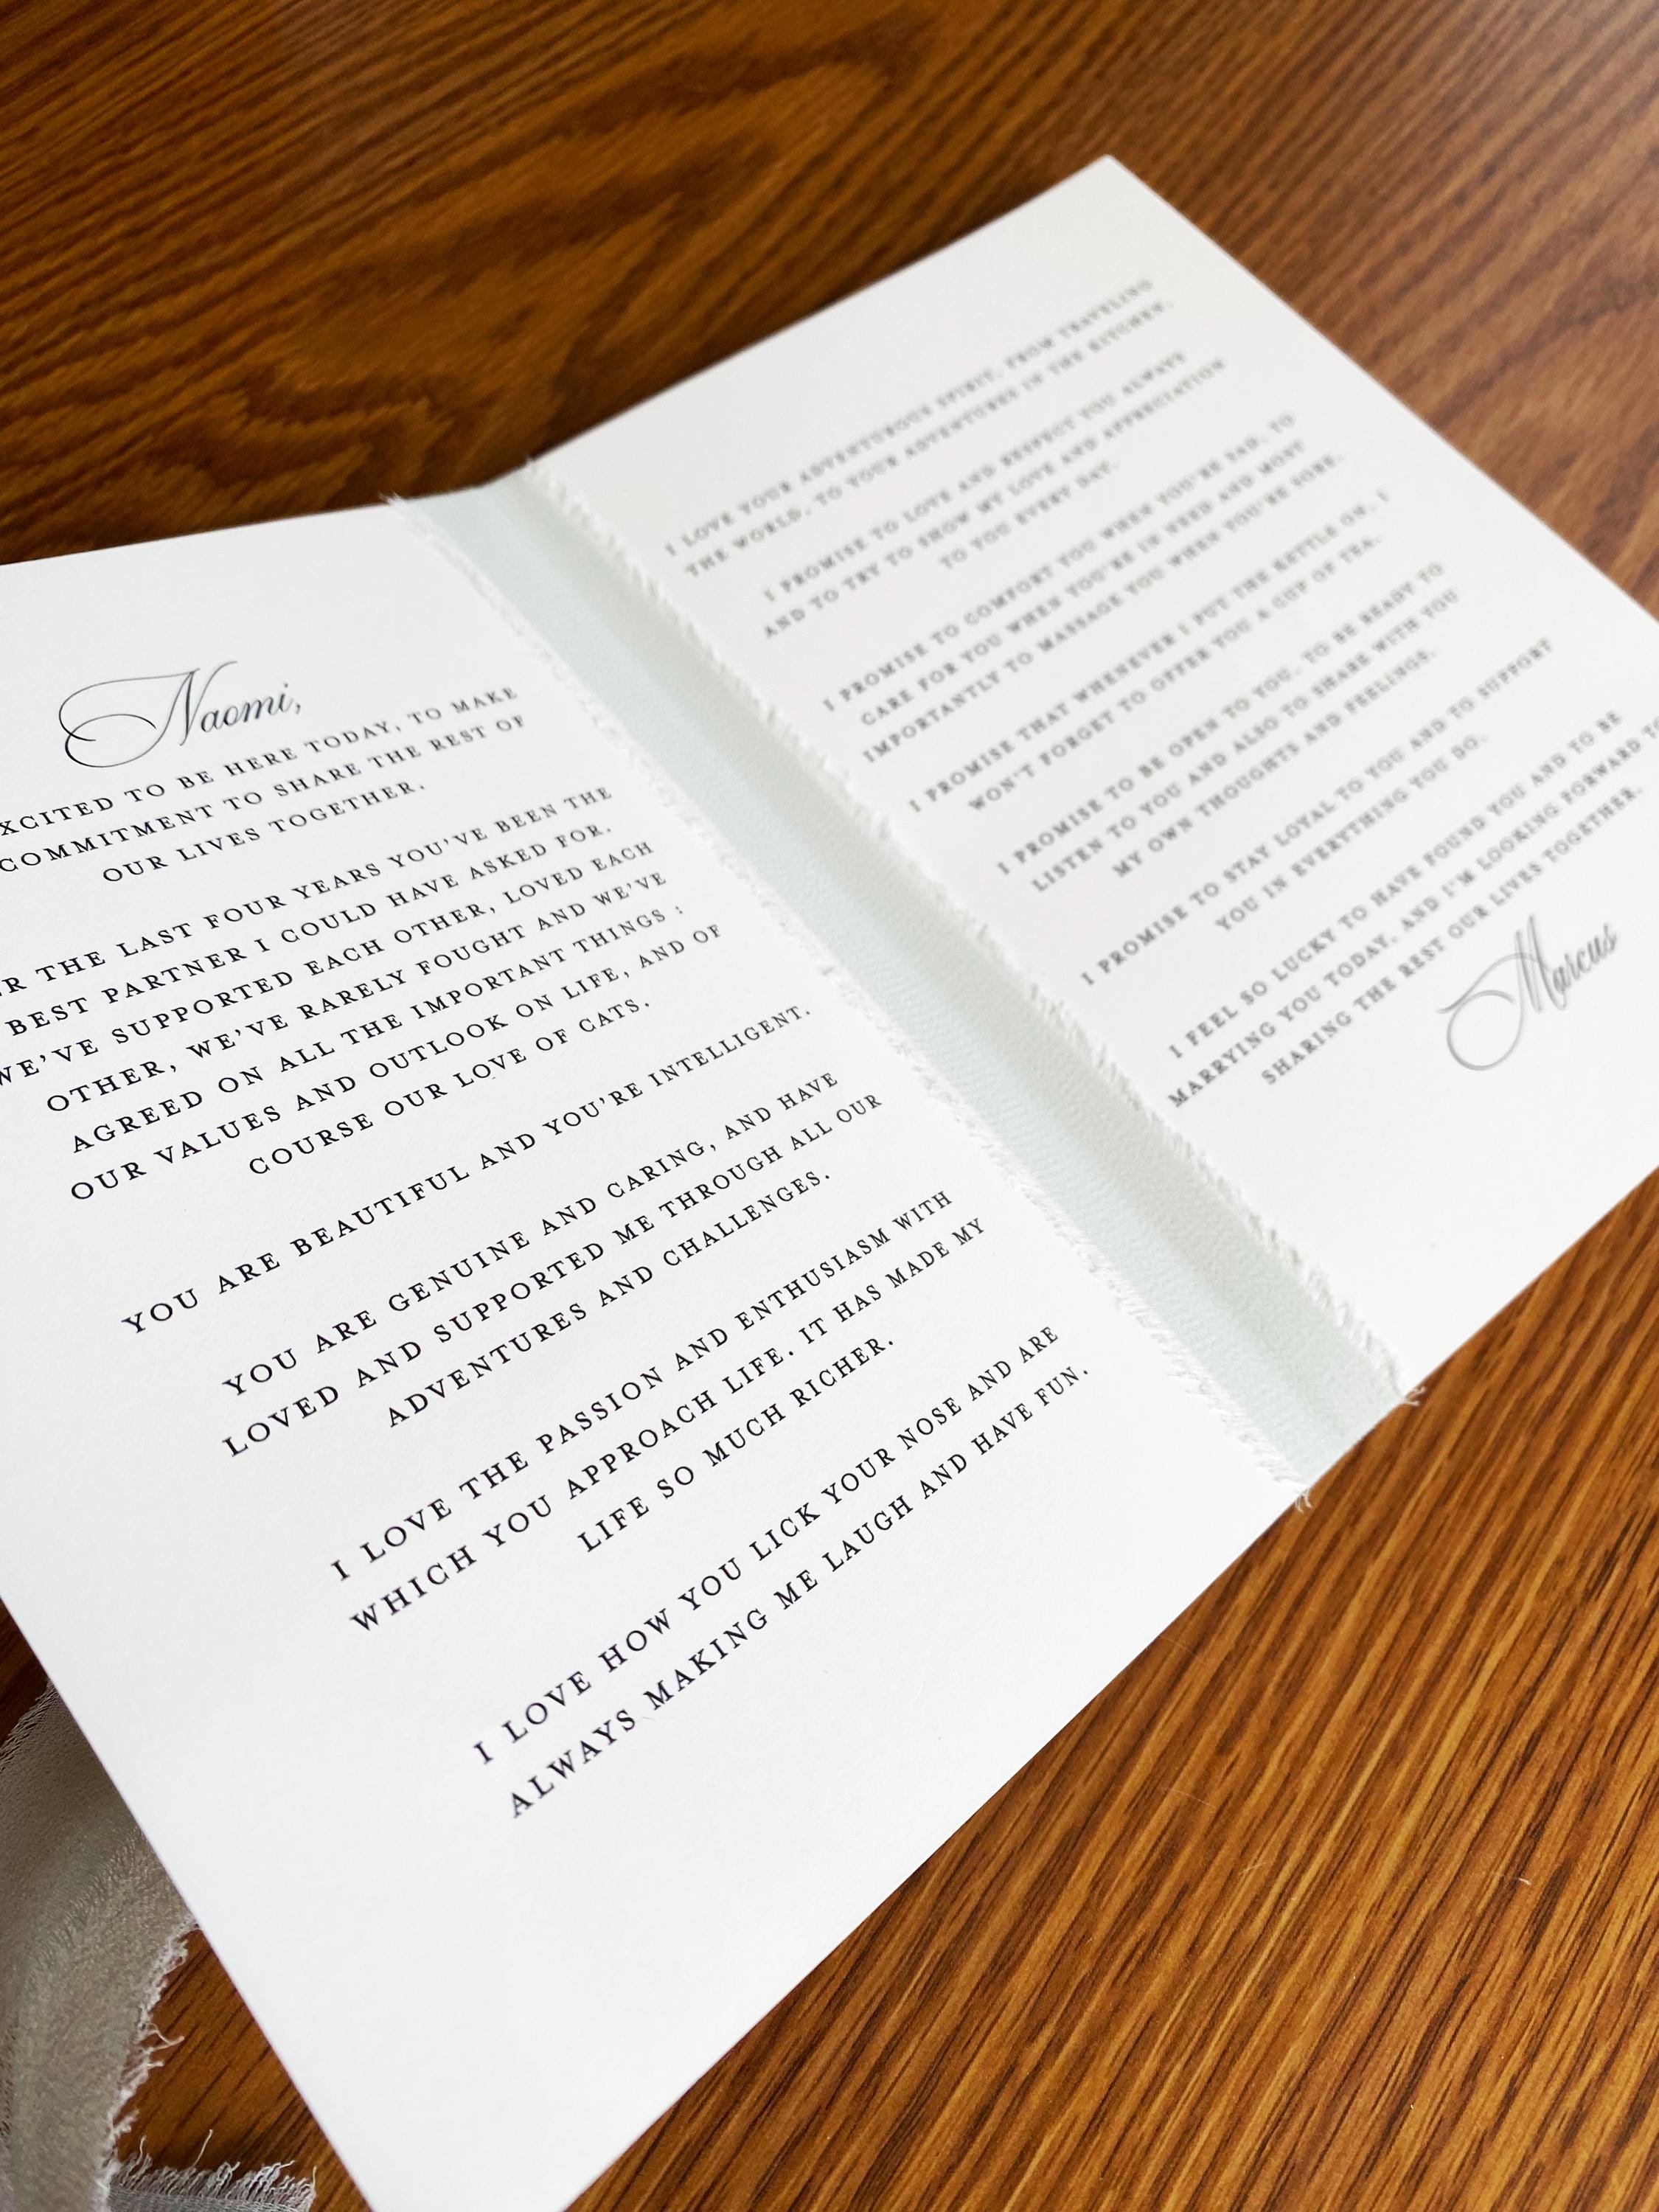 Naomi,
XCITED TO BE HERE TODAY, TO MAKE
COMMITMENT TO SHARE THE REST OF
OUR LIVES TOGETHER.
R THE LAST FOUR YEARS YOU'VE BEEN THE
BEST PARTNER I COULD HAVE ASKED FOR.
WE'VE SUPPORTED EACH OTHER, LOVED EACH
OTHER, WE'VE RARELY FOUGHT AND WE'VE
AGREED ON ALL THE IMPORTANT THINGS :
OUR VALUES AND OUTLOOK ON LIFE, AND OF
COURSE OUR LOVE OF CATS.
YOU ARE BEAUTIFUL AND YOU'RE INTELLIGENT.
YOU ARE GENUINE AND CARING, AND HAVE
LOVED AND SUPPORTED ME THROUGH ALL OUR
ADVENTURES AND CHALLENGES.
I LOVE THE PASSION AND ENTHUSIASM WITH
WHICH YOU APPROACH LIFE. IT HAS MADE MY
LIFE SO MUCH RICHER.
I LOVE HOW YOU LICK YOUR NOSE AND ARE
ALWAYS MAKING ME LAUGH AND HAVE FUN.
I LOVE YOUR ADVENTUROUS SPIRIT, FROM TRAVELING
THE WORLD, TO YOUR ADVENTURES IN THE KITCHEN.
I PROMISE TO LOVE AND RESPECT YOU ALWAYS
AND TO TRY TO SHOW MY LOVE AND APPRECIATION
TO YOU EVERY DAY.
I PROMISE TO COMFORT YOU WHEN YOU'RE SAD, TO
CARE FOR YOU WHEN YOU'RE IN NEED AND MOST
IMPORTANTLY TO MASSAGE YOU WHEN YOU'RE SORE.
I PROMISE THAT WHENEVER I PUT THE KETTLE ON, I
WON'T FORGET TO OFFER YOU A CUP OF TEA.
I PROMISE TO BE OPEN TO YOU. TO BE READY TO
LISTEN TO YOU AND ALSO TO SHARE WITH YOU
MY OWN THOUGHTS AND FEELINGS.
I PROMISE TO STAY LOYAL TO YOU AND TO SUPPORT
YOU IN EVERYTHING YOU DO.
I FEEL SO LUCKY TO HAVE FOUND YOU AND TO BE
MARRYING YOU TODAY, AND I'M LOOKING FORWARD TO
SHARING THE REST OUR LIVES TOGETHER.
Marcus